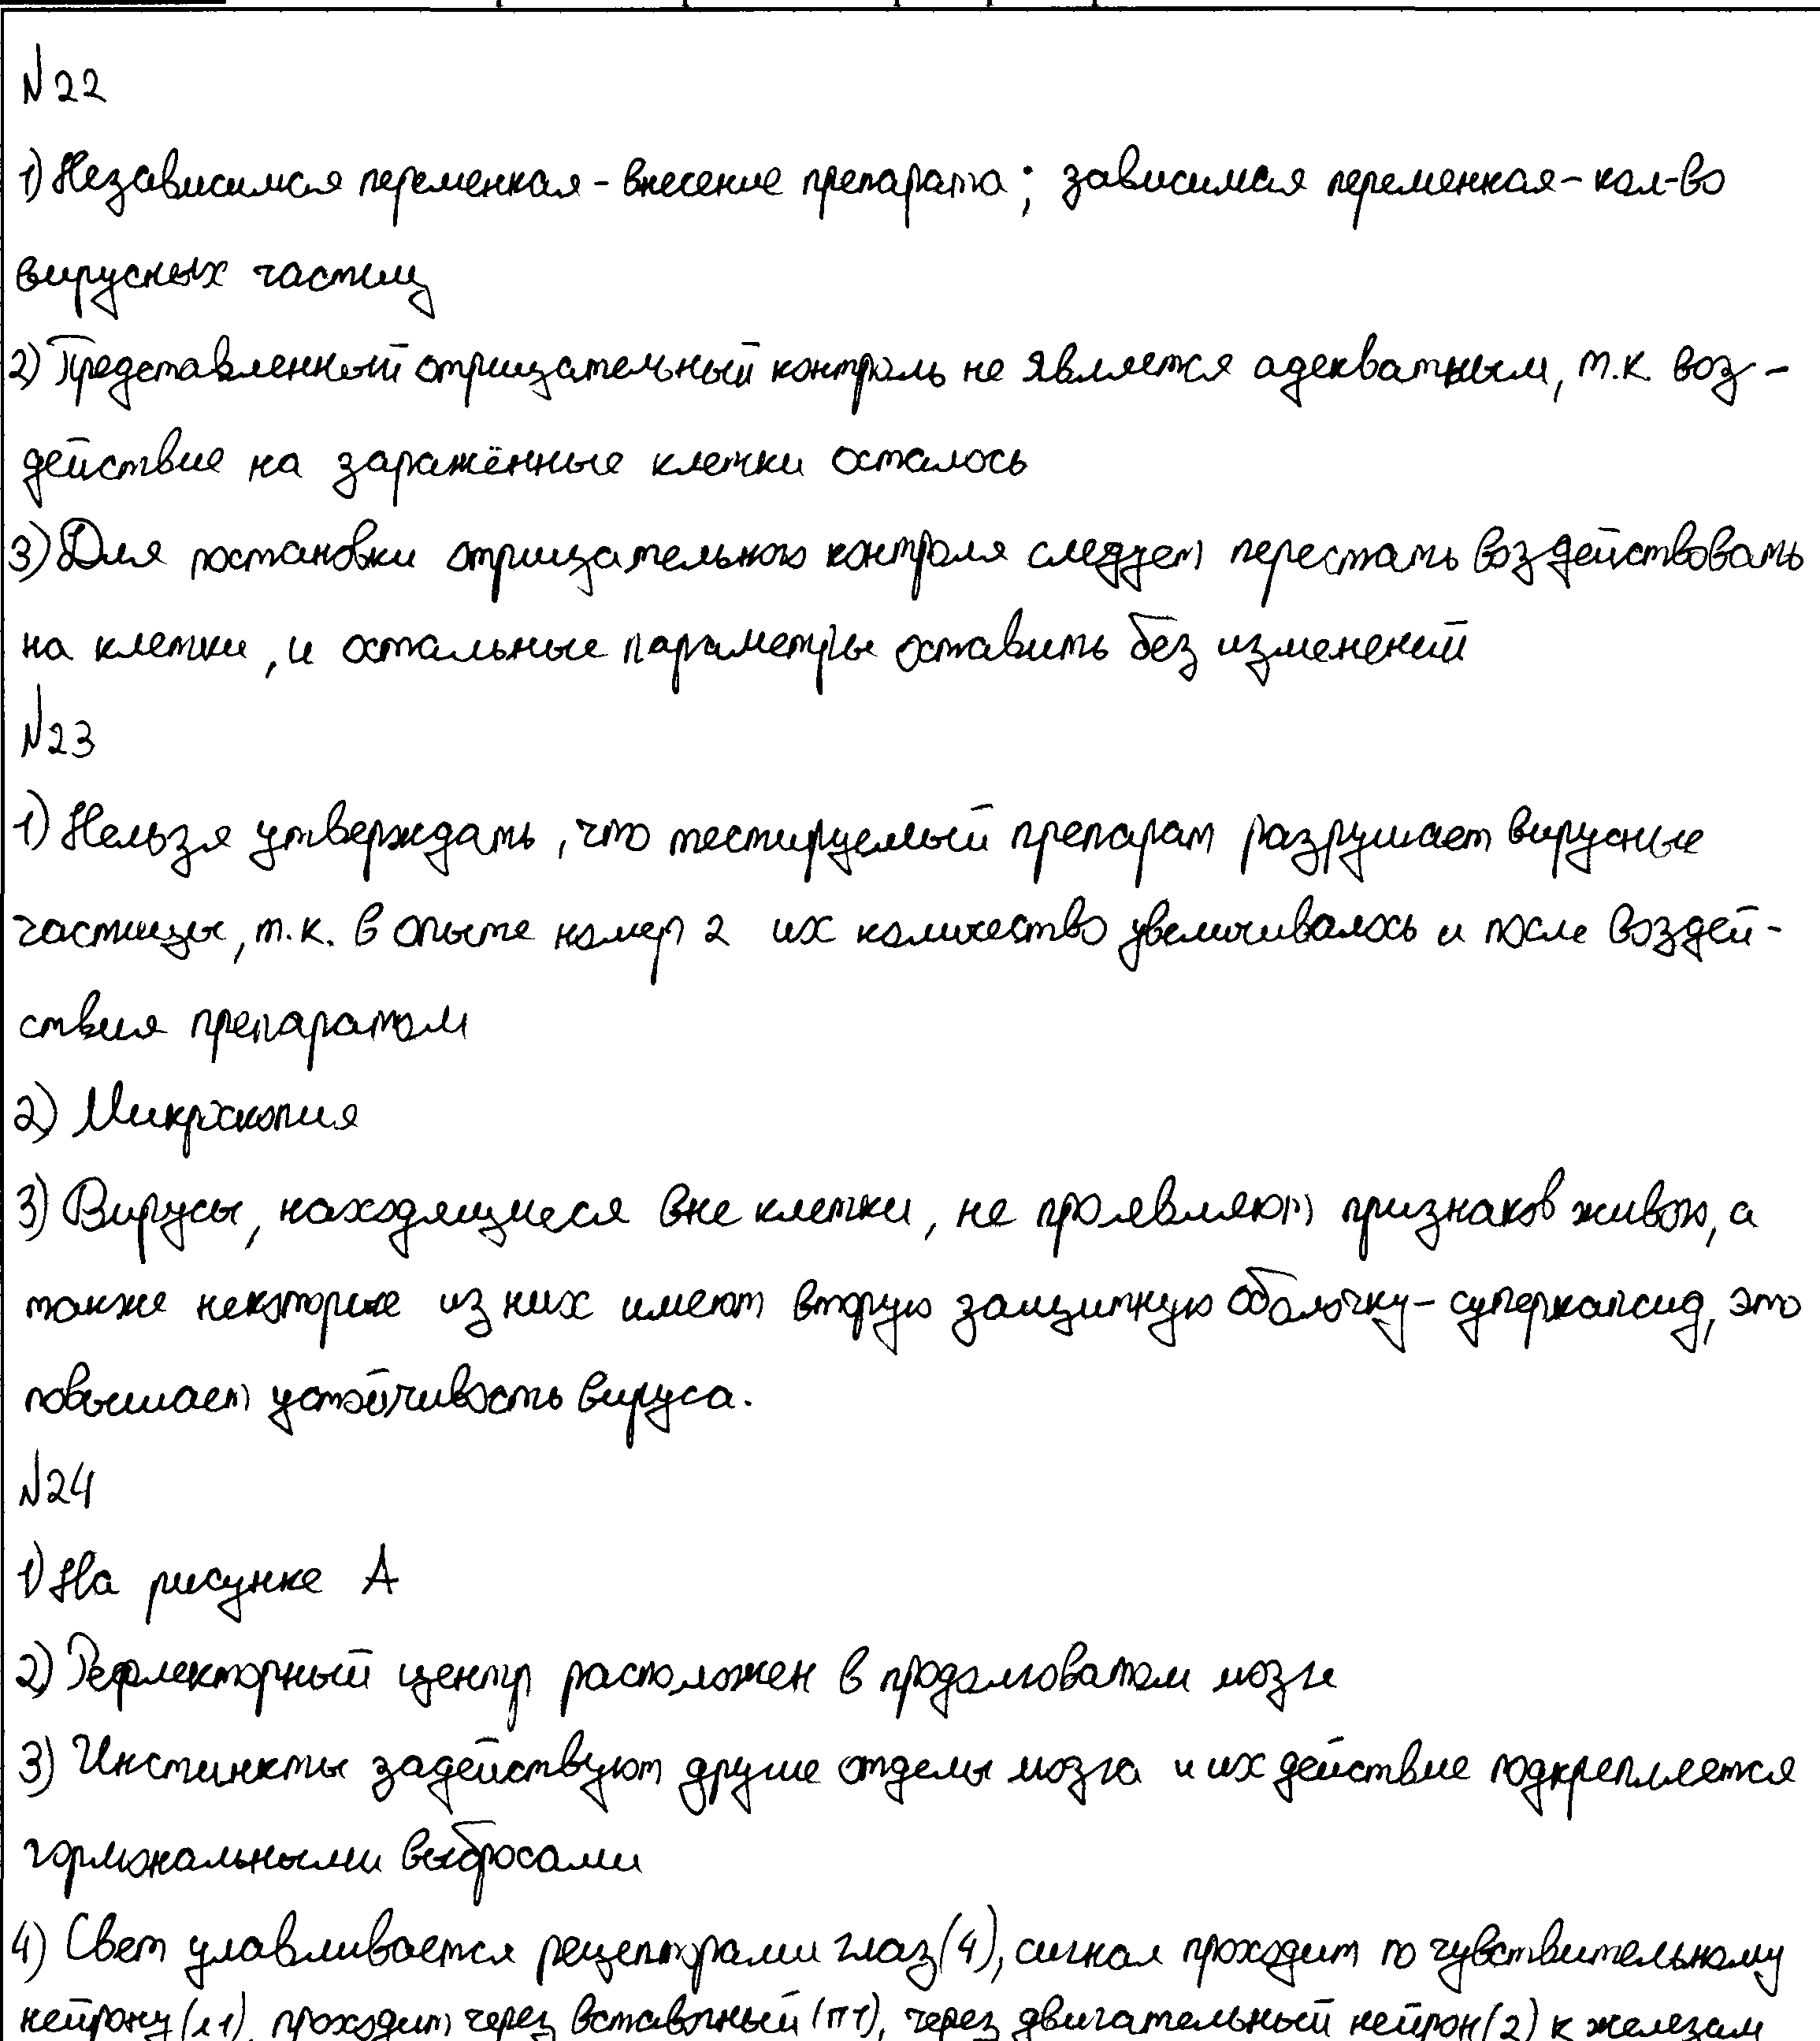 №22
1) Независимая переменная - внесение препарата; зависимая переменная - кол-во
вирусных частиц
2) Представленный отрицательный контроль не является адекватным, т.к. воз-
действие на заражённые клетки осталось
3) Для постановки отрицательного контроля следует перестать воздействовать
на клетки, и остальные параметры оставить без изменений
№23
1) Нельзя утверждать, что тестируемый препарат разрушает вирусные
частицы, т.к. в опыте номер 2 их количество увеличивалось и после воздей-
ствия препаратом
2) Микроскопия
3) Вирусы, находящиеся вне клетки, не проявляют признаков живого, а
также некоторые из них имеют вторую защитную оболочку - суперкапсид, это
повышает устойчивость вируса.
№24
1) На рисунке А
2) Рефлекторный центр расположен в продолговатом мозге
3) Инстинкты задействуют другие отделы мозга и их действие подкрепляется
гормональными выбросами
4) Свет улавливается рецепторами глаз (4), сигнал проходит по чувствительному
нейрону проходит через вставочный через двигательный нейрон (2) к железам